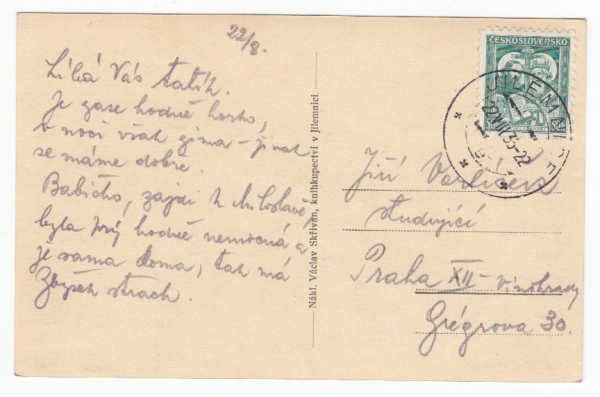 22/8.
Líbá Vás tatíh.
Je zase hodně horko,
v noci však zima – jinak
se máme dobře.
Babičko, zajdi k Miloslavě,
byla prý hodně nemocná a
je sama doma, tak má
Zbyšek strach.
Nákl. Václav Skřivan, knihkupectví v Jilemnici.
ČESKOSLOVENSKO
JILEMNICE
Jiří
studující
Praha XII – Vinohrady
Grégrova 30.